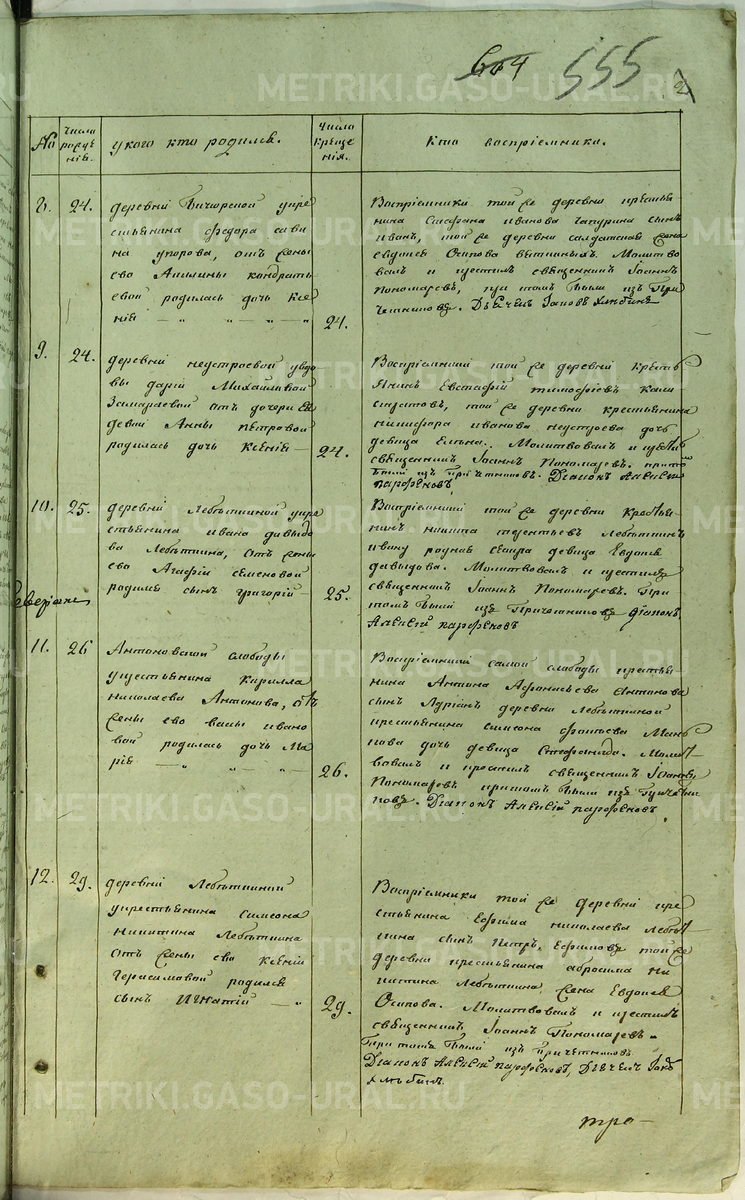 664 555
METRIKI.GASO-URAL.RU
№
Числа рожде нія.
у кого кто родился.
Число креще нія.
Кто воспріемники.
8. 24.
деревни Бичюровой у кре
стьянина федора сави
на упорова, отъ жены
ево Акилины кондрать
евой родилась дочь Ксе
нія
24.
Воспріемники той же деревни крестья
нина Стефана иванова Чапурина сынъ
иванъ, той же деревни салдатская жена
евдокія Осипова вяткиныхъ. Молитво
валъ и крестилъ священникъ Іоаннъ
Пономаревъ, при томъ были изъ При
четниковъ. Дьячекъ Іаковъ Хлыбинъ
9. 24.
деревни неустроевой у вдо
вы дарьи Михайловой
Замараевой отъ дочери ея
девки Анны петровой
родилась дочь Ксенія
24.
Воспріемники той же деревни кресть
янинъ Евстафій тимофѣевъ
той же деревни крестьянина
никифора иванова неустроева дочь
девица Елена. Молитвовалъ и крестилъ
священникъ Іоаннъ Пономаревъ. притомъ
были изъ Причетниковъ. Діаконъ Алексѣй
парфеновъ
10. 25.
деревни Лебяткиной у кре
стьянина ивана давыдо
ва Лебяткина, отъ жены
ево Агафьи семеновой
родился сынъ григорій
25.
Воспріемники той же деревни Крестья
нинъ никита терентьевъ Лебяткинъ
ивану родная сестра девица Евдокія
давыдова. Молитвовалъ и крестилъ
священникъ Іоаннъ Пономаревъ. При
томъ были изъ Причетниковъ діаконъ
Алексѣй парфеновъ
11. 26
Антоновской слободы
у крестьянина Кирилла
николаева Антонова, отъ
жены ево васы ивано
вой родилась дочь Ма
рія
26.
Воспріемники самой слободы крестья
нина Антона Афанасьева Антонова
сынъ Адріанъ деревни Лебяткиной
крестьянина симеона
дочь девица Стефанида. Молит
вовалъ и крестилъ священникъ Іоаннъ
Пономаревъ притомъ были изъ Причетни
ковъ. Діаконъ Алексѣй парфеновъ
12. 29.
деревни Лебяткиной
у крестьянина симеона
никитина Лебяткина
отъ жены ево Ксеніи
Герасимовой родился
сынъ Игнатій
29.
Воспріемники той же деревни кре
стьянина Ефима николаева Лебят
кина сынъ Петръ, Ефимовъ той же
деревни крестьянина абросима ни
китина Лебяткина, жена Евдокія
Осипова. Молитвовалъ и крестилъ
священникъ Іоаннъ Пономаревъ
При томъ были изъ Причетниковъ
Діаконъ Алексѣй парфеновъ, Дьячекъ Іаковъ
хлыбинъ.
тро
METRIKI.GASO-URAL.RU